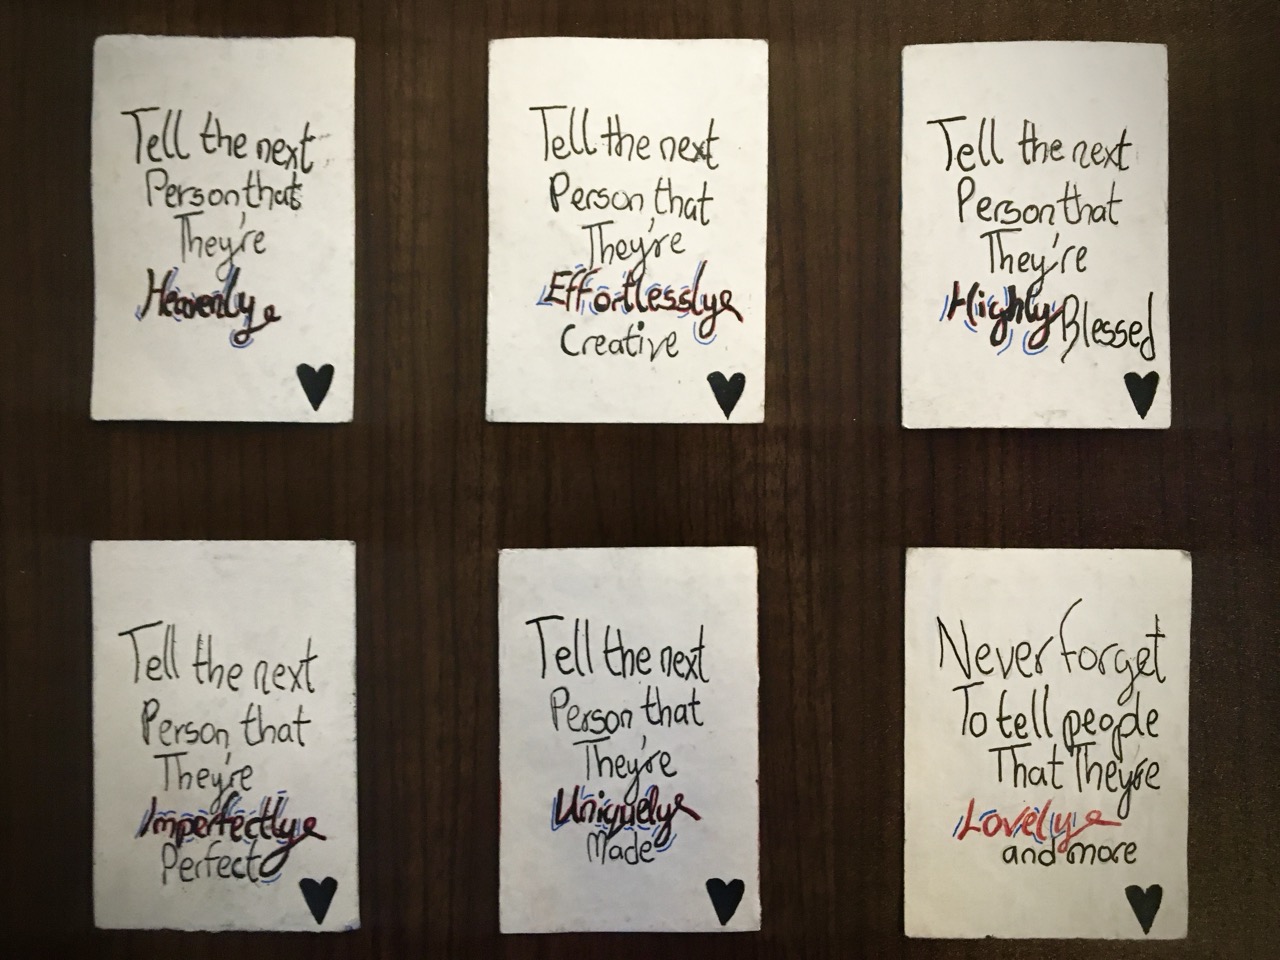 Tell the next
Person that
They're
Heavenly
Tell the next
Person that
They're
Effortlessly
Creative
Tell the next
Person that
They're
Highly Blessed
Tell the next
Person that
They're
Imperfectly
Perfect
Tell the next
Person that
They're
Uniquely
Made
Never forget
To tell people
That They're
Lovely
and more